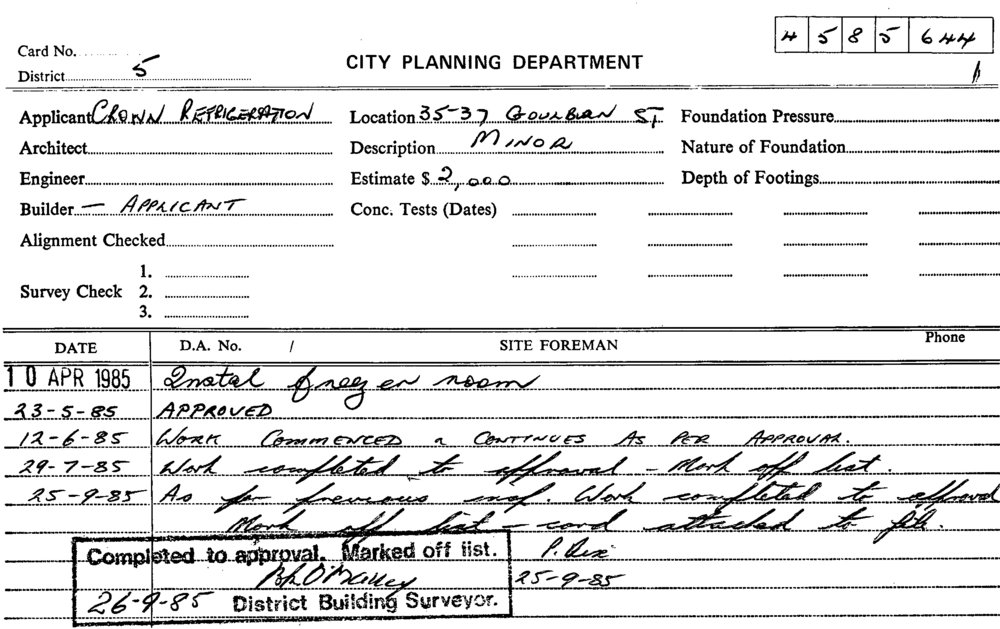 4 5 8 5 644
Card No.
District 5
CITY PLANNING DEPARTMENT
Applicant CROWN REFRIGERATION
Location 35-37 GOULBURN ST
Foundation Pressure
Architect
Description MINOR
Nature of Foundation
Engineer
Estimate $ 2,000
Depth of Footings
Builder — APPLICANT
Conc. Tests (Dates)
Alignment Checked
Survey Check 1.
2.
3.
DATE D.A. No. / SITE FOREMAN Phone
10 APR 1985 Instal freezer room
23-5-85 APPROVED
12-6-85 WORK COMMENCED & CONTINUES AS PER APPROVAL.
29-7-85 Work completed to approval - Mark off list.
25-9-85 As per previous insp. Work completed to approval
Mark off list - card attached to file.
Completed to approval. Marked off list.
25-9-85
26-9-85 District Building Surveyor.